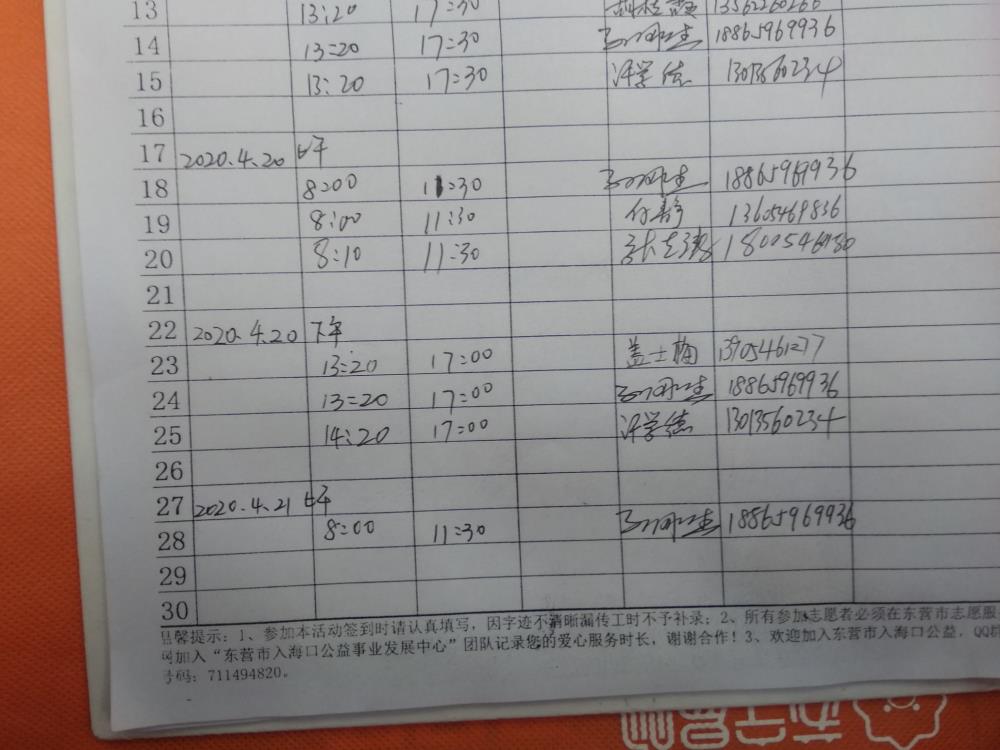 13 13:20 17:30
14 13:20 17:30 18865969936
15 13:20 17:30 许学德 13013560234
16
17 2020.4.20 上午
18 8:00 11:30 18865969936
19 8:00 11:30 付静 13605469836
20 8:10 11:30
21
22 2020.4.20 下午
23 13:20 17:00 盖士梅 13905461277
24 13:20 17:00 18865969936
25 14:20 17:00 许学德 13013560234
26
27 2020.4.21 上午
28 8:00 11:30 18865969936
29
30
温馨提示：1、参加本活动签到时请认真填写，因字迹不清晰漏传工时不予补录；2、所有参加志愿者必须在东营市志愿服
加入“东营市入海口公益事业发展中心”团队记录您的爱心服务时长，谢谢合作！3、欢迎加入东营市入海口公益，QQ群
号码：711494820。